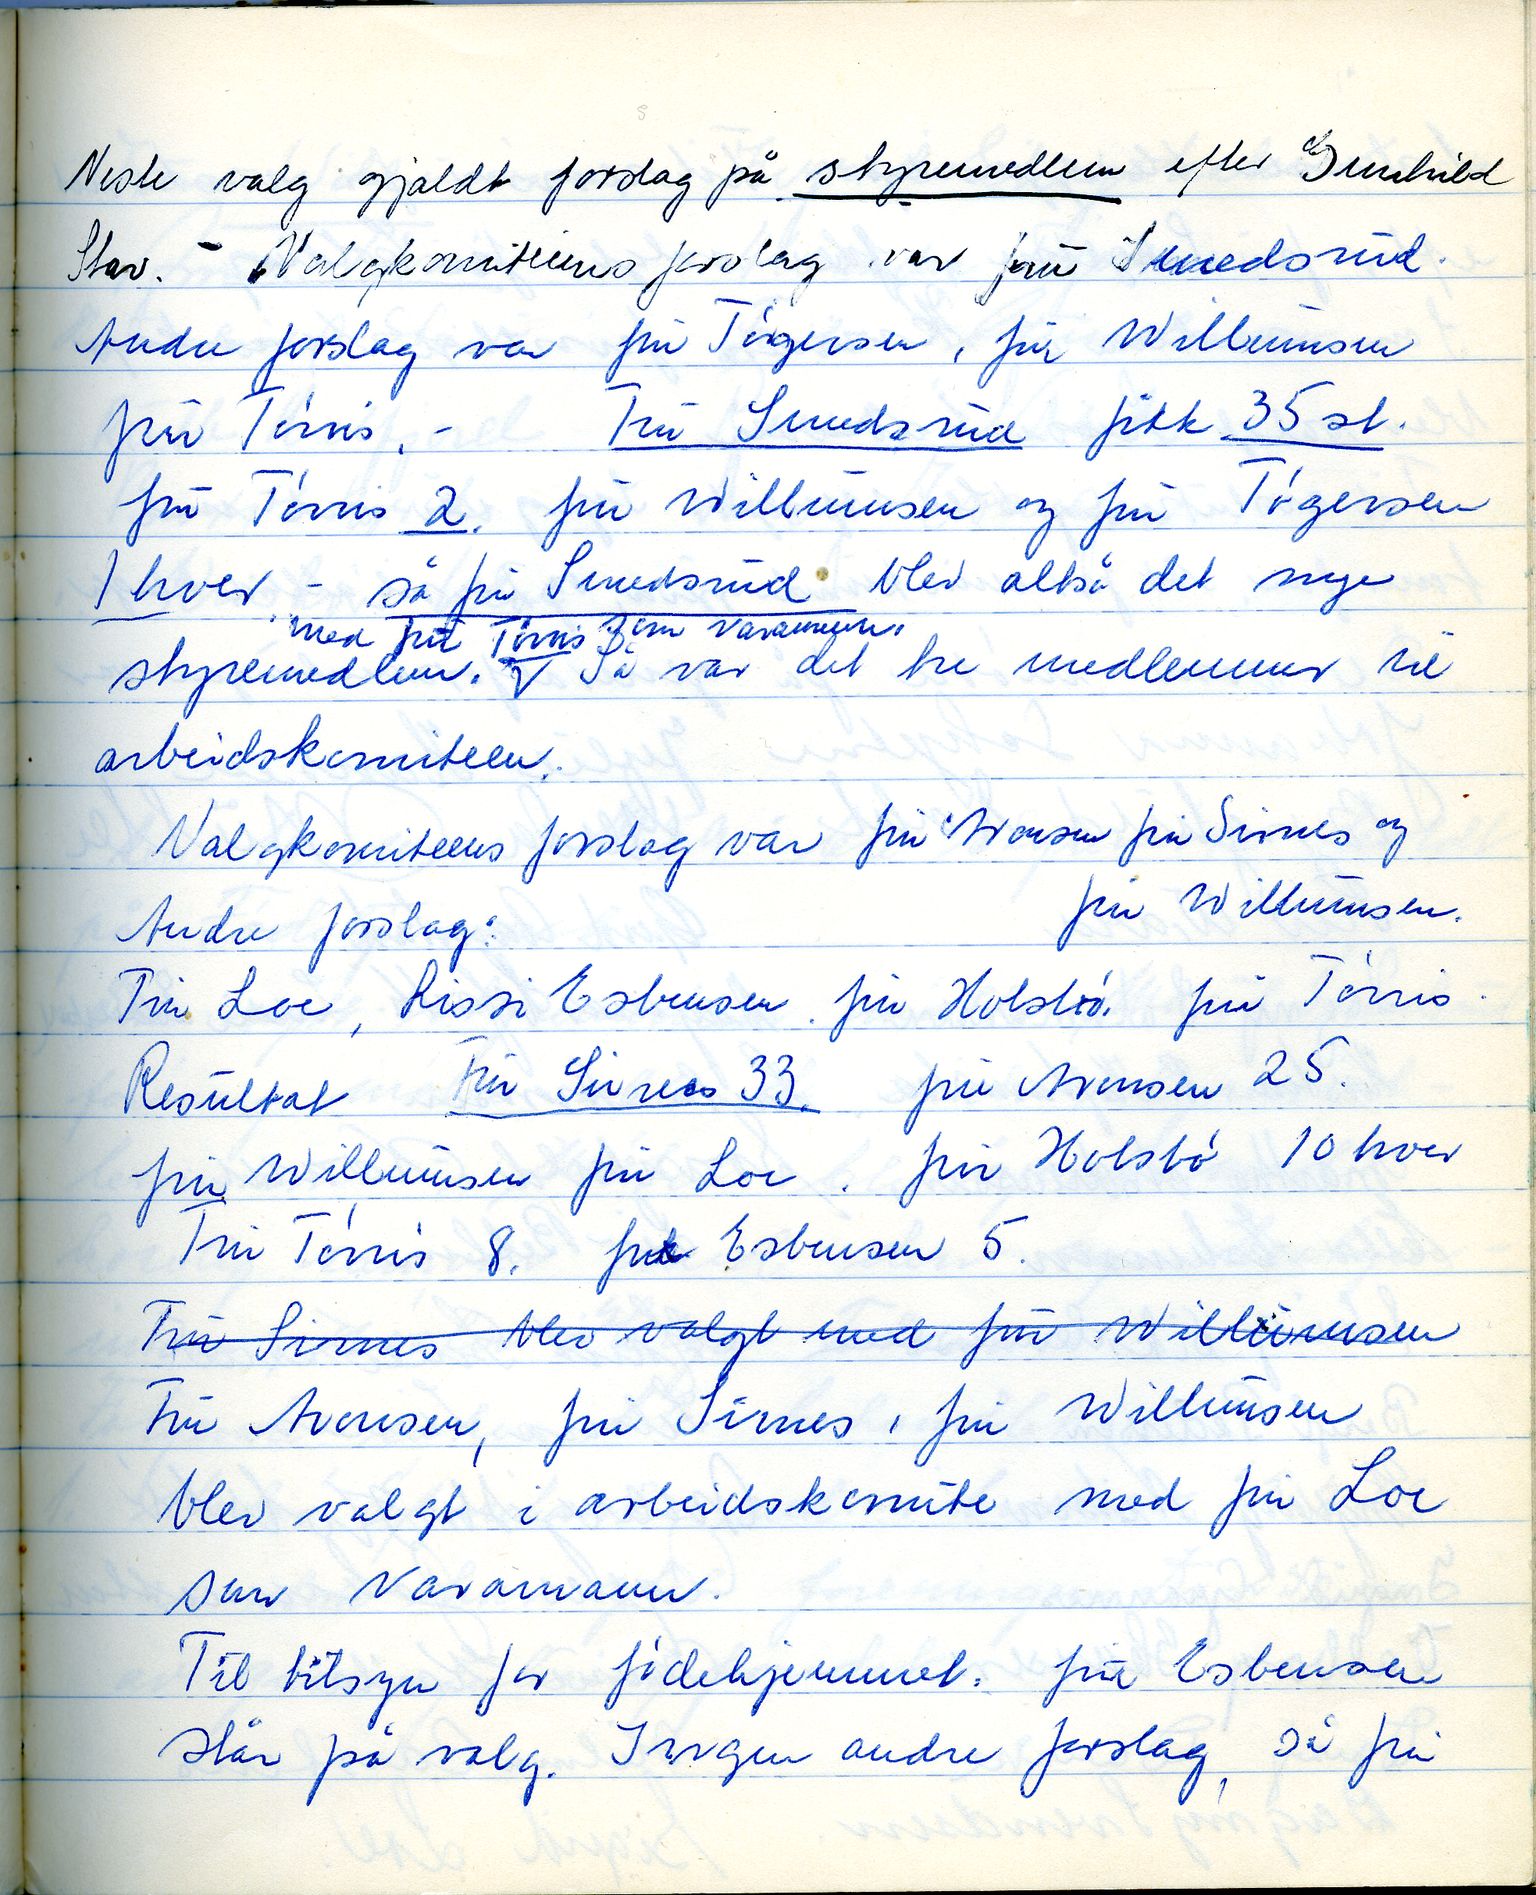 Neste valg gjaldt forslag på styremedlem efter Gunhild
Stav. - Valgkomiteens forslag var frú Smedsrúd.
Andre forslag var frú Tógersen, frú Willúmsen
frú Tórris. - Frú Smedsrúd fikk 35 st.
frú Tórris 2. frú Willúmsen og frú Tógersen
1 hver - så frú Smedsrúd blev altså det nye
med frú Tórris som varamann.
styremedlem. Så var det tre medlemmer til
arbeidskomiteen.
Valgkomiteens forslag var frú Aronsen frú Sirnes og
frú Willúmsen.
Andre forslag:
Frú Loe, Lissi Esbensen frú Holstó. frú Tórris.
Resúltat Frú Sirnes 33. frú Aronsen 25.
frú Willúmsen frú Loe. frú Holstó 10 hver
Frú Tórris 8. frk Esbensen 5.
Frú Sirnes blev valgt med frú Willúmsen
Frú Aronsen, frú Sirnes, frú Willúmsen
blev valgt i arbeidskomite med frú Loe
som varamann.
Til tilsyn for fódehjemmet. frú Esbensen
står på valg. Ingen andre forslag, så frú